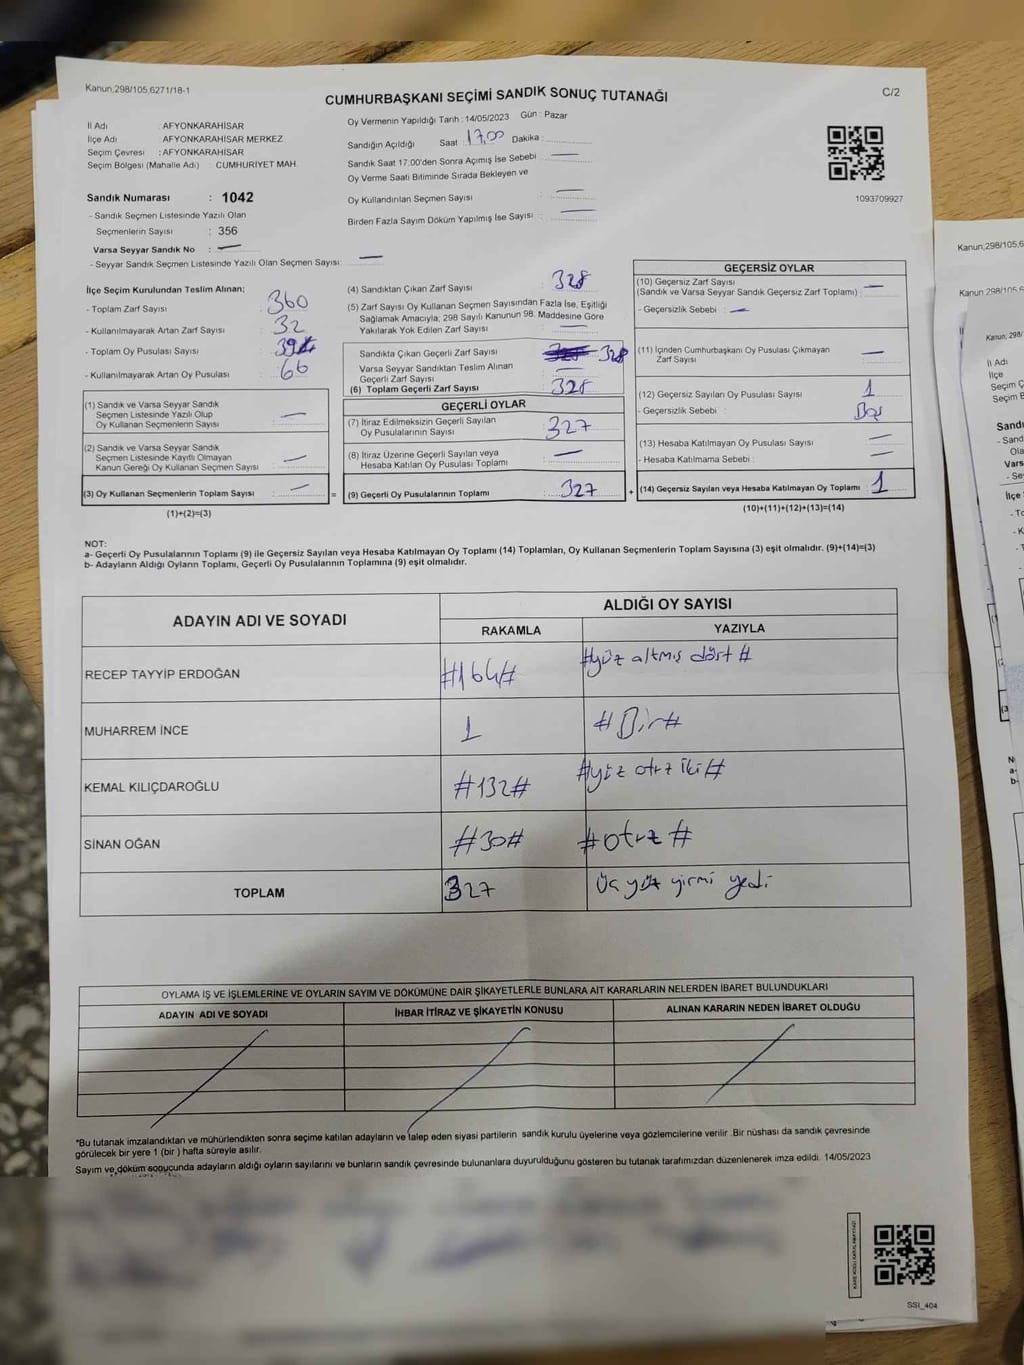 Kanun;298/105,6271/18-1
CUMHURBAŞKANI SEÇİMİ SANDIK SONUÇ TUTANAĞI
C/2
İl Adı : AFYONKARAHİSAR
İlçe Adı : AFYONKARAHİSAR MERKEZ
Seçim Çevresi : AFYONKARAHİSAR
Seçim Bölgesi (Mahalle Adı) : CUMHURİYET MAH.
Sandık Numarası : 1042
- Sandık Seçmen Listesinde Yazılı Olan
Seçmenlerin Sayısı : 356
Varsa Seyyar Sandık No : —
- Seyyar Sandık Seçmen Listesinde Yazılı Olan Seçmen Sayısı: —
Oy Vermenin Yapıldığı Tarih : 14/05/2023 Gün : Pazar
Sandığın Açıldığı Saat : 17,00 Dakika :
Sandık Saat 17:00'den Sonra Açımış İse Sebebi : —
Oy Verme Saati Bitiminde Sırada Bekleyen ve
Oy Kullandırılan Seçmen Sayısı : —
Birden Fazla Sayım Döküm Yapılmış İse Sayısı : —
1093709927
İlçe Seçim Kurulundan Teslim Alınan;
- Toplam Zarf Sayısı : 360
- Kullanılmayarak Artan Zarf Sayısı : 32
- Toplam Oy Pusulası Sayısı :
- Kullanılmayarak Artan Oy Pusulası : 66
(1) Sandık ve Varsa Seyyar Sandık
Seçmen Listesinde Yazılı Olup
Oy Kullanan Seçmenlerin Sayısı : —
(2) Sandık ve Varsa Seyyar Sandık
Seçmen Listesinde Kayıtlı Olmayan
Kanun Gereği Oy Kullanan Seçmen Sayısı : —
(3) Oy Kullanan Seçmenlerin Toplam Sayısı : — =
(1)+(2)=(3)
(4) Sandıktan Çıkan Zarf Sayısı : 328
(5) Zarf Sayısı Oy Kullanan Seçmen Sayısından Fazla İse, Eşitliği
Sağlamak Amacıyla; 298 Sayılı Kanunun 98. Maddesine Göre
Yakılarak Yok Edilen Zarf Sayısı : —
Sandıkta Çıkan Geçerli Zarf Sayısı : 328
Varsa Seyyar Sandıktan Teslim Alınan
Geçerli Zarf Sayısı : —
(6) Toplam Geçerli Zarf Sayısı : 328
GEÇERLİ OYLAR
(7) İtiraz Edilmeksizin Geçerli Sayılan
Oy Pusulalarının Sayısı : 327
(8) İtiraz Üzerine Geçerli Sayılan veya
Hesaba Katılan Oy Pusulası Toplamı : —
(9) Geçerli Oy Pusulalarının Toplamı : 327 +
GEÇERSİZ OYLAR
(10) Geçersiz Zarf Sayısı : —
(Sandık ve Varsa Seyyar Sandık Geçersiz Zarf Toplamı) :
- Geçersizlik Sebebi : —
(11) İçinden Cumhurbaşkanı Oy Pusulası Çıkmayan
Zarf Sayısı : —
(12) Geçersiz Sayılan Oy Pusulası Sayısı : 1
- Geçersizlik Sebebi : Boş
(13) Hesaba Katılmayan Oy Pusulası Sayısı : —
- Hesaba Katılmama Sebebi : —
(14) Geçersiz Sayılan veya Hesaba Katılmayan Oy Toplamı : 1
(10)+(11)+(12)+(13)=(14)
NOT:
a- Geçerli Oy Pusulalarının Toplamı (9) ile Geçersiz Sayılan veya Hesaba Katılmayan Oy Toplamı (14) Toplamları, Oy Kullanan Seçmenlerin Toplam Sayısına (3) eşit olmalıdır. (9)+(14)=(3)
b- Adayların Aldığı Oyların Toplamı, Geçerli Oy Pusulalarının Toplamına (9) eşit olmalıdır.
ADAYIN ADI VE SOYADI
ALDIĞI OY SAYISI
RAKAMLA YAZIYLA
RECEP TAYYİP ERDOĞAN #164# #yüz altmış dört#
MUHARREM İNCE 1 #Bir#
KEMAL KILIÇDAROĞLU #132# #yüz otuz iki#
SİNAN OĞAN #30# #otuz#
TOPLAM 327 Üç yüz yirmi yedi
OYLAMA İŞ VE İŞLEMLERİNE VE OYLARIN SAYIM VE DÖKÜMÜNE DAİR ŞİKAYETLERLE BUNLARA AİT KARARLARIN NELERDEN İBARET BULUNDUKLARI
ADAYIN ADI VE SOYADI İHBAR İTİRAZ VE ŞİKAYETİN KONUSU ALINAN KARARIN NEDEN İBARET OLDUĞU
*Bu tutanak imzalandıktan ve mühürlendikten sonra seçime katılan adayların ve talep eden siyasi partilerin sandık kurulu üyelerine veya gözlemcilerine verilir .Bir nüshası da sandık çevresinde
görülecek bir yere 1 (bir ) hafta süreyle asılır.
Sayım ve döküm sonucunda adayların aldığı oyların sayılarını ve bunların sandık çevresinde bulunanlara duyurulduğunu gösteren bu tutanak tarafımızdan düzenlenerek imza edildi. 14/05/2023
SSİ_404
Kanun;298/105,6
Kanun 298/105,6